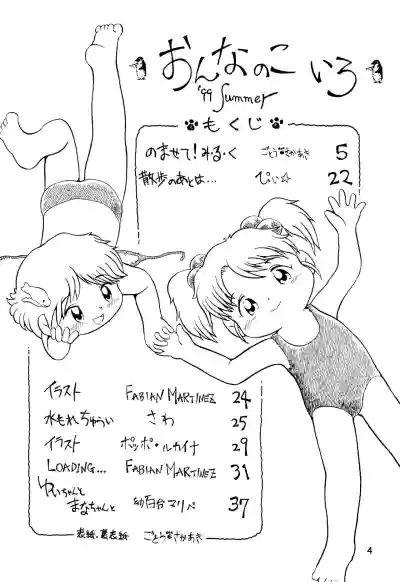 おんなのこ いろ
'99 Summer
もくじ
のませて!み・る・く ごとうまさかあき 5
散歩のあとは… ぴぃ☆ 22
イラスト FABIAN MARTINEZ 24
水もれちゅうい さわ 25
イラスト ポッポ・ルカイナ 29
LOADING... FABIAN MARTINEZ 31
ゆいちゃんと
まなちゃんと 幼百合マリペ 37
表紙・裏表紙
4